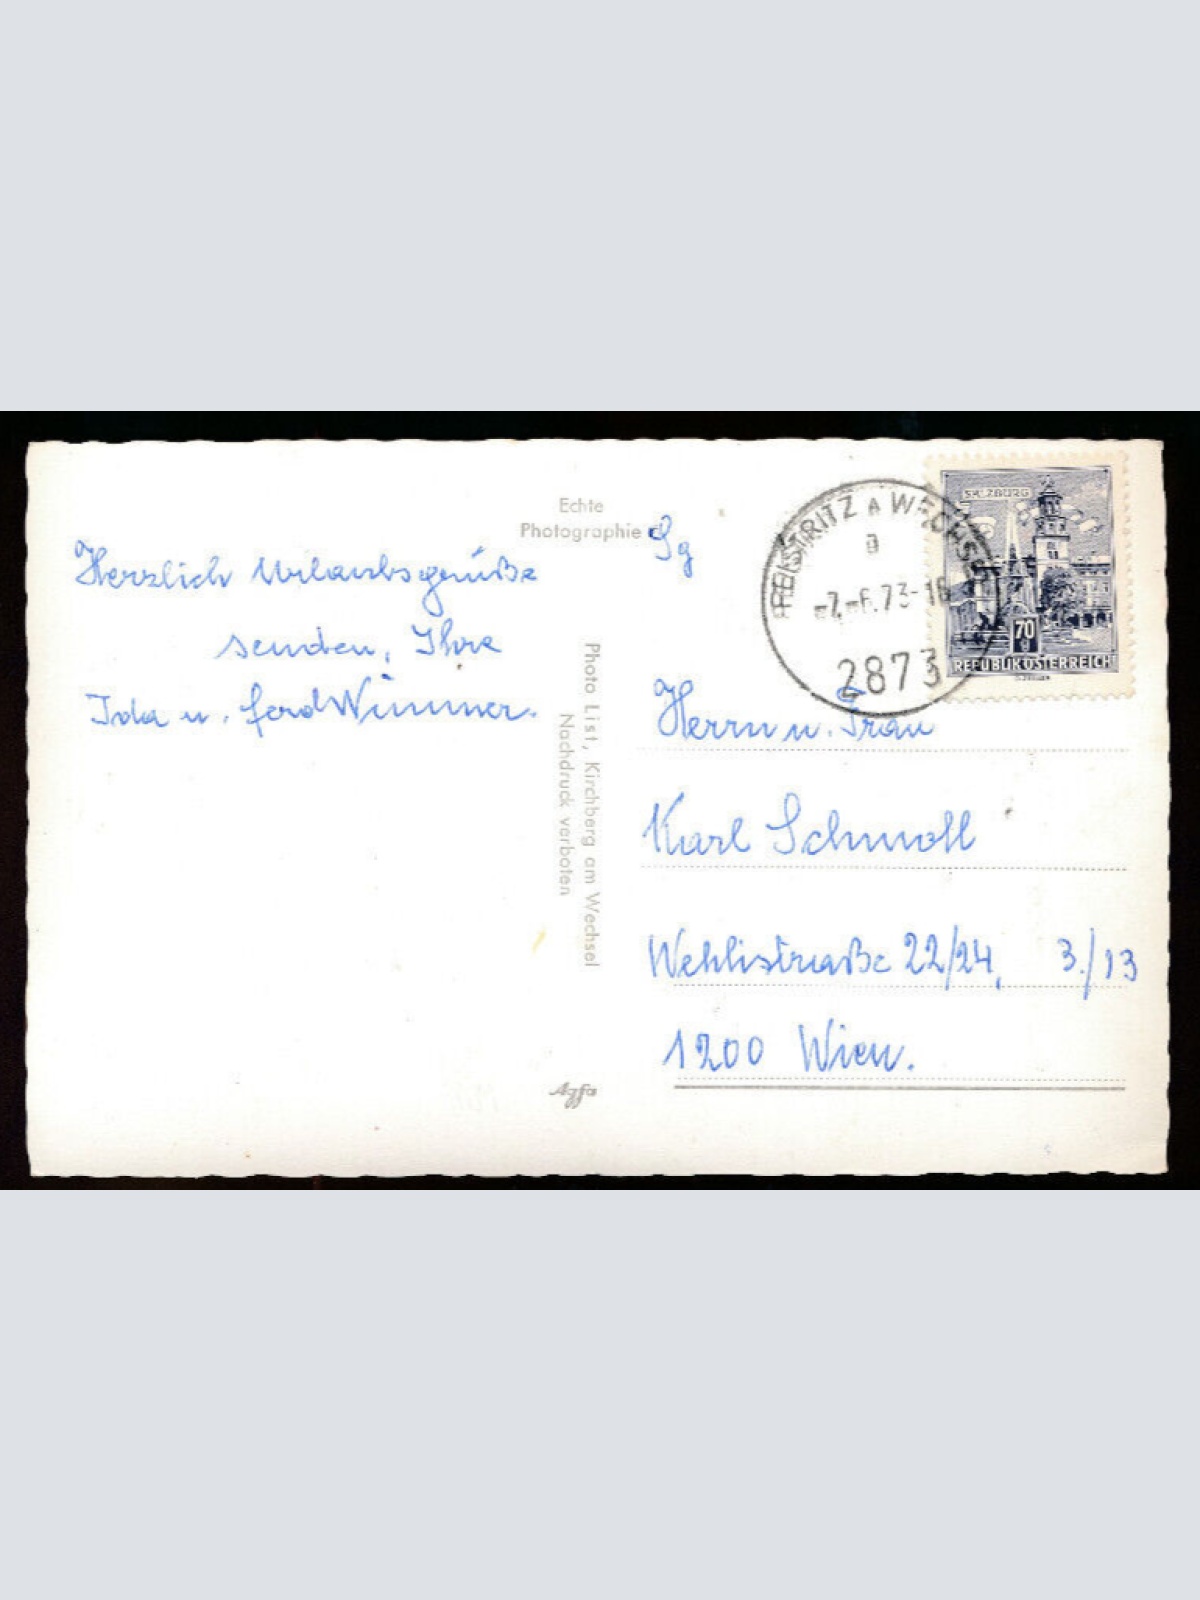 Echte
Photographie
Herzlich Urlaubsgrüße
senden, Ihre
Ida u. Ferd Wimmer.
Photo List, Kirchberg am Wechsel
Nachdruck verboten
Agfa
FEISTRITZ A WECHSEL
a
-7.-6.73-16
2873
SALZBURG
70
g
REPUBLIK ÖSTERREICH
Sg
Herrn u. Frau
Karl Schmoll
Wehlistraße 22/24, 3./13
1200 Wien.